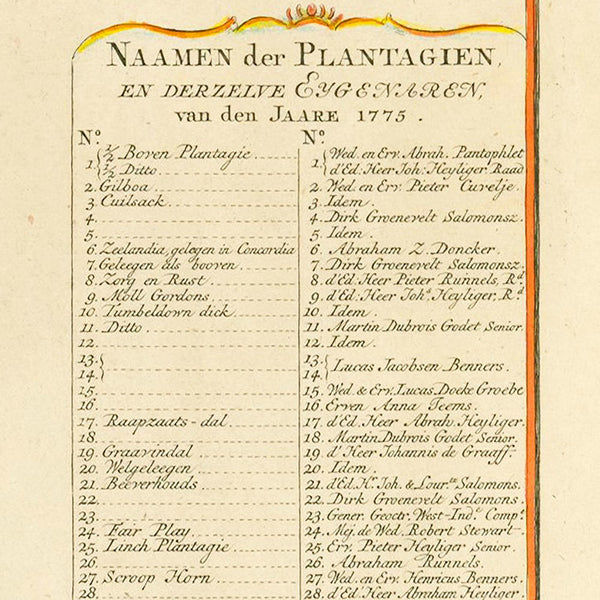 NAAMEN der PLANTAGIEN,
EN DERZELVE EYGENAREN,
van den JAARE 1775.
No. No.
1. { ½ Boven Plantagie 1. { Wed. en Erv. Abrah. Pantophlet
½ Ditto d'Ed. Heer Joh: Heyliger Raad
2. Gilboa 2. Wed. en Erv. Pieter Cuvelje.
3. Cuilsack. 3. Idem.
4. 4. Dirk Groenevelt Salomonsz.
5. 5. Idem.
6. Zeelandia, gelegen in Concordia 6. Abraham Z. Doncker.
7. Geleegen als booven. 7. Dirk Groenevelt Salomonsz.
8. Zorg en Rust. 8. d'Ed. Heer Pieter Runnels, Rd.
9. Moll Gordons. 9. d'Ed. Heer Johs. Heyliger, Rd.
10. Tumbeldown dick. 10. Idem.
11. Ditto. 11. Martin Dubrois Godet Senior.
12. 12. Idem.
13. } 13. } Lucas Jacobsen Benners.
14. 14.
15. 15. Wed. & Erv. Lucas Doeke Groebe
16. 16. Erven Anna Teems.
17. Raapzaats-dal. 17. d'Ed. Heer Abrah. Heyliger.
18. 18. Martin Dubrois Godet Senior.
19. Graavindal 19. d'Heer Johannis de Graaff.
20. Welgeleegen 20. Idem.
21. Beeverhouds. 21. d'Ed. Hr. Joh. & Lour.s Salomons.
22. 22. Dirk Groenevelt Salomons.
23. 23. Gener. Geoctr. West-Ind.e Comp.e
24. Fair Play 24. Mej. de Wed. Robert Stewart
25. Linch Plantagie 25. Erv. Pieter Heyliger Senior.
26. 26. Abraham Runnels.
27. Scroop Horn 27. Wed. en Erv. Henricus Benners.
28. 28. d'Ed. Heer Abraham Heyliger.